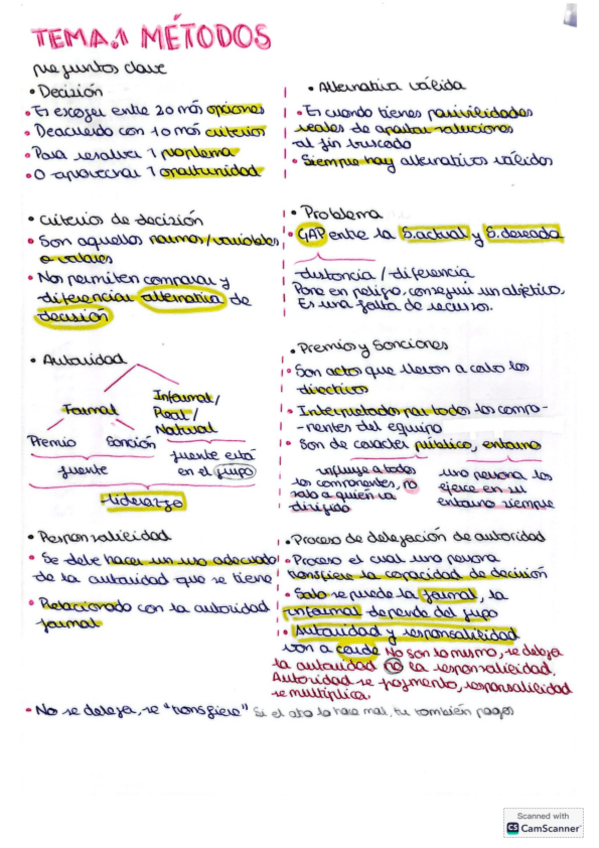 TEMA.1 MÉTODOS
preguntas clave
• Decisión
• Es escoger entre 2 o más opciones
• Deacuerdo con 1 o más criterios
• Para resolver 1 problema
• O aprovechar 1 oportunidad
• Alternativa válida
• Es cuando tienes posivilidades
reales de aportar soluciones
al fin buscado
• Siempre hay alternativas válidas
• Criterios de decisión
• Son aquellos normas/variables
o valores
• Nos permiten comparar y
diferenciar alternativa de
decisión
• Problema
• GAP entre la S.actual y S.deseada
distancia / diferencia
Pone en peligro, conseguir un objetivo.
Es una falta de recursos.
• Autoridad
Formal
Informal/
Real/
Natural
Premio Sanción
fuente
fuente está
en el grupo
liderazgo
• Premios y Sanciones
• Son actos que llevan a cabo los
directivos
• Interpretados por todos los compo-
-nentes del equipo
• Son de carácter público, entorno
influye a todos
los componentes, no
solo a quien va
dirigido
una persona los
ejerce en su
entorno siempre
• Responsabilidad
• Se debe hacer un uso adecuado
de la autoridad que se tiene
• Relacionado con la autoridad
formal
• Proceso de delegación de autoridad
• Proceso el cual una persona
transfiere la capacidad de decisión
• Solo se puede la formal, la
informal depende del grupo
• Autoridad y responsabilidad
van a
No son lo mismo, se delega
la autoridad no la responsabilidad.
Autoridad se fragmenta, responsabilidad
se multiplica.
• No se delega, se "transfiere" Si el otro lo hace mal, tu también pagas
Scanned with
CS CamScanner